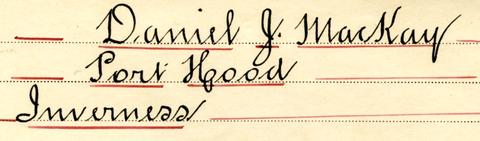 Daniel J. MacKay
Port Hood
Inverness